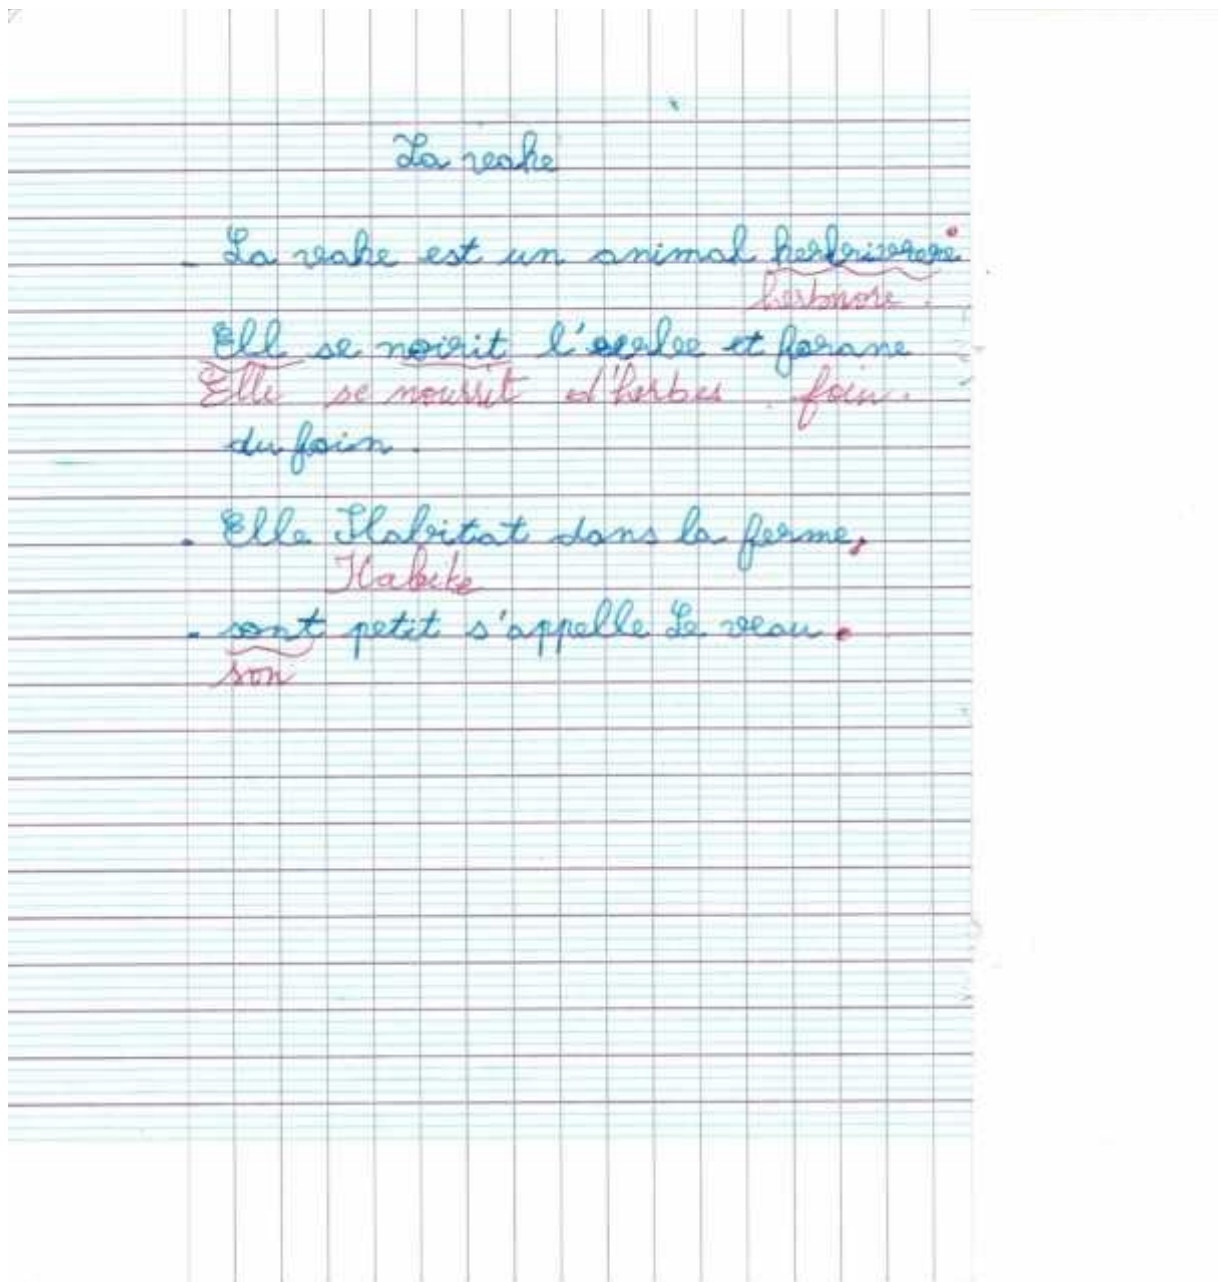 La veahe
- La veahe est un animal herbrivore.
herbivore.
Ell se noirit l'erbe et
Elle se nourrit d'herbes. foin.
du foin.
- Elle Habitat dans la ferme,
Habite
- sont petit s'appelle Le veau.
son